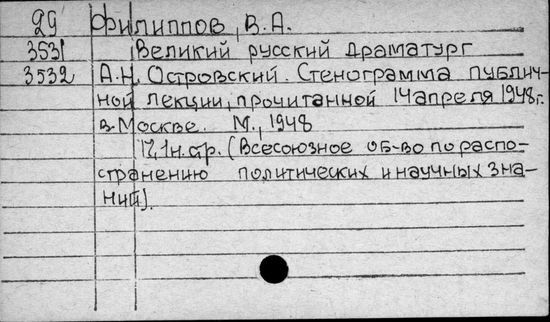 29 Филиппов, В.А.
3531 Великий русский драматург
3532 А.Н. Островский. Стенограмма публич-
ной лекции, прочитанной 14 апреля 1948г.
в Москве. М., 1948
17, 1н.стр. (Всесоюзное об-во по распо-
странению политических и научных зна-
ний).